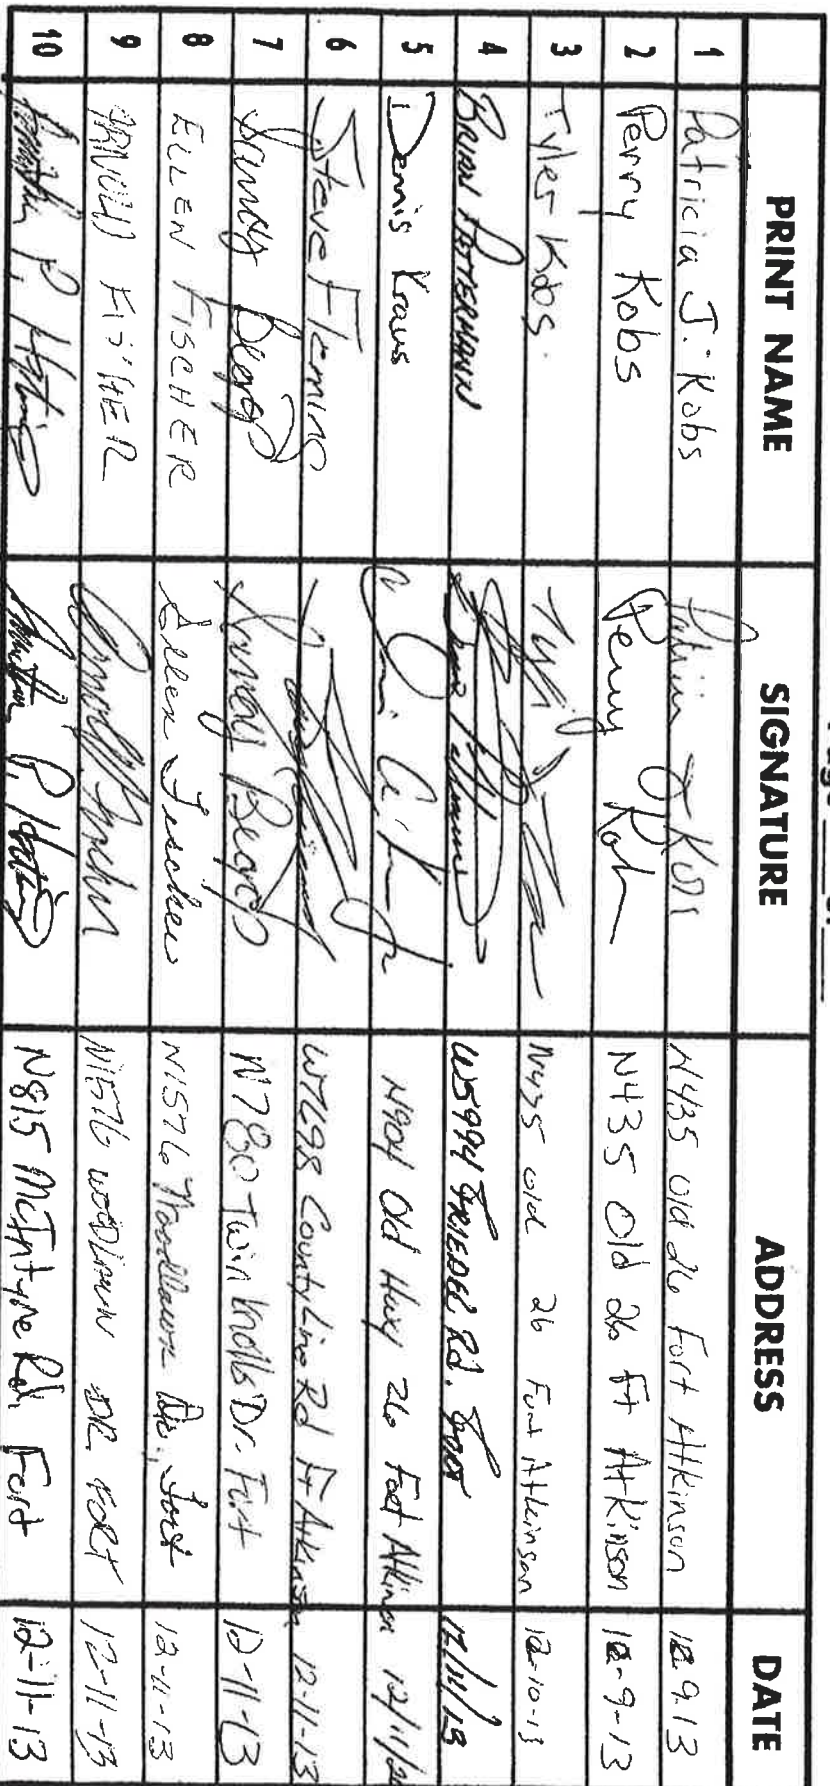 Page ___ of ___
PRINT NAME SIGNATURE ADDRESS DATE
1 Patricia J. Kobs Patricia J Kobs N435 old 26 Fort Atkinson 12-9-13
2 Perry Kobs Perry Kobs N435 Old 26 Ft Atkinson 12-9-13
3 Tyler Kobs. N435 old 26 Fort Atkinson 12-10-13
4 BRIAN PETTERMANN W5994 FRIEDEL Rd. FORT 12/11/13
5 Dennis Kraus N904 Old Hwy 26 Fort Atkinson 12/11/
6 Steve Fleming W7698 County Line Rd Ft Atkinson 12-11-13
7 Sandy N780 Twin Knolls Dr. Fort 12-11-13
8 ELLEN FISCHER Ellen Fischer N1576 Woodlawn Dr., Fort 12-11-13
9 ARNOLD FISCHER Arnold Fischer N1576 WOODLAWN DR FORT 12-11-13
10 P. P. N815 McIntyre Rd, Fort 12-11-13